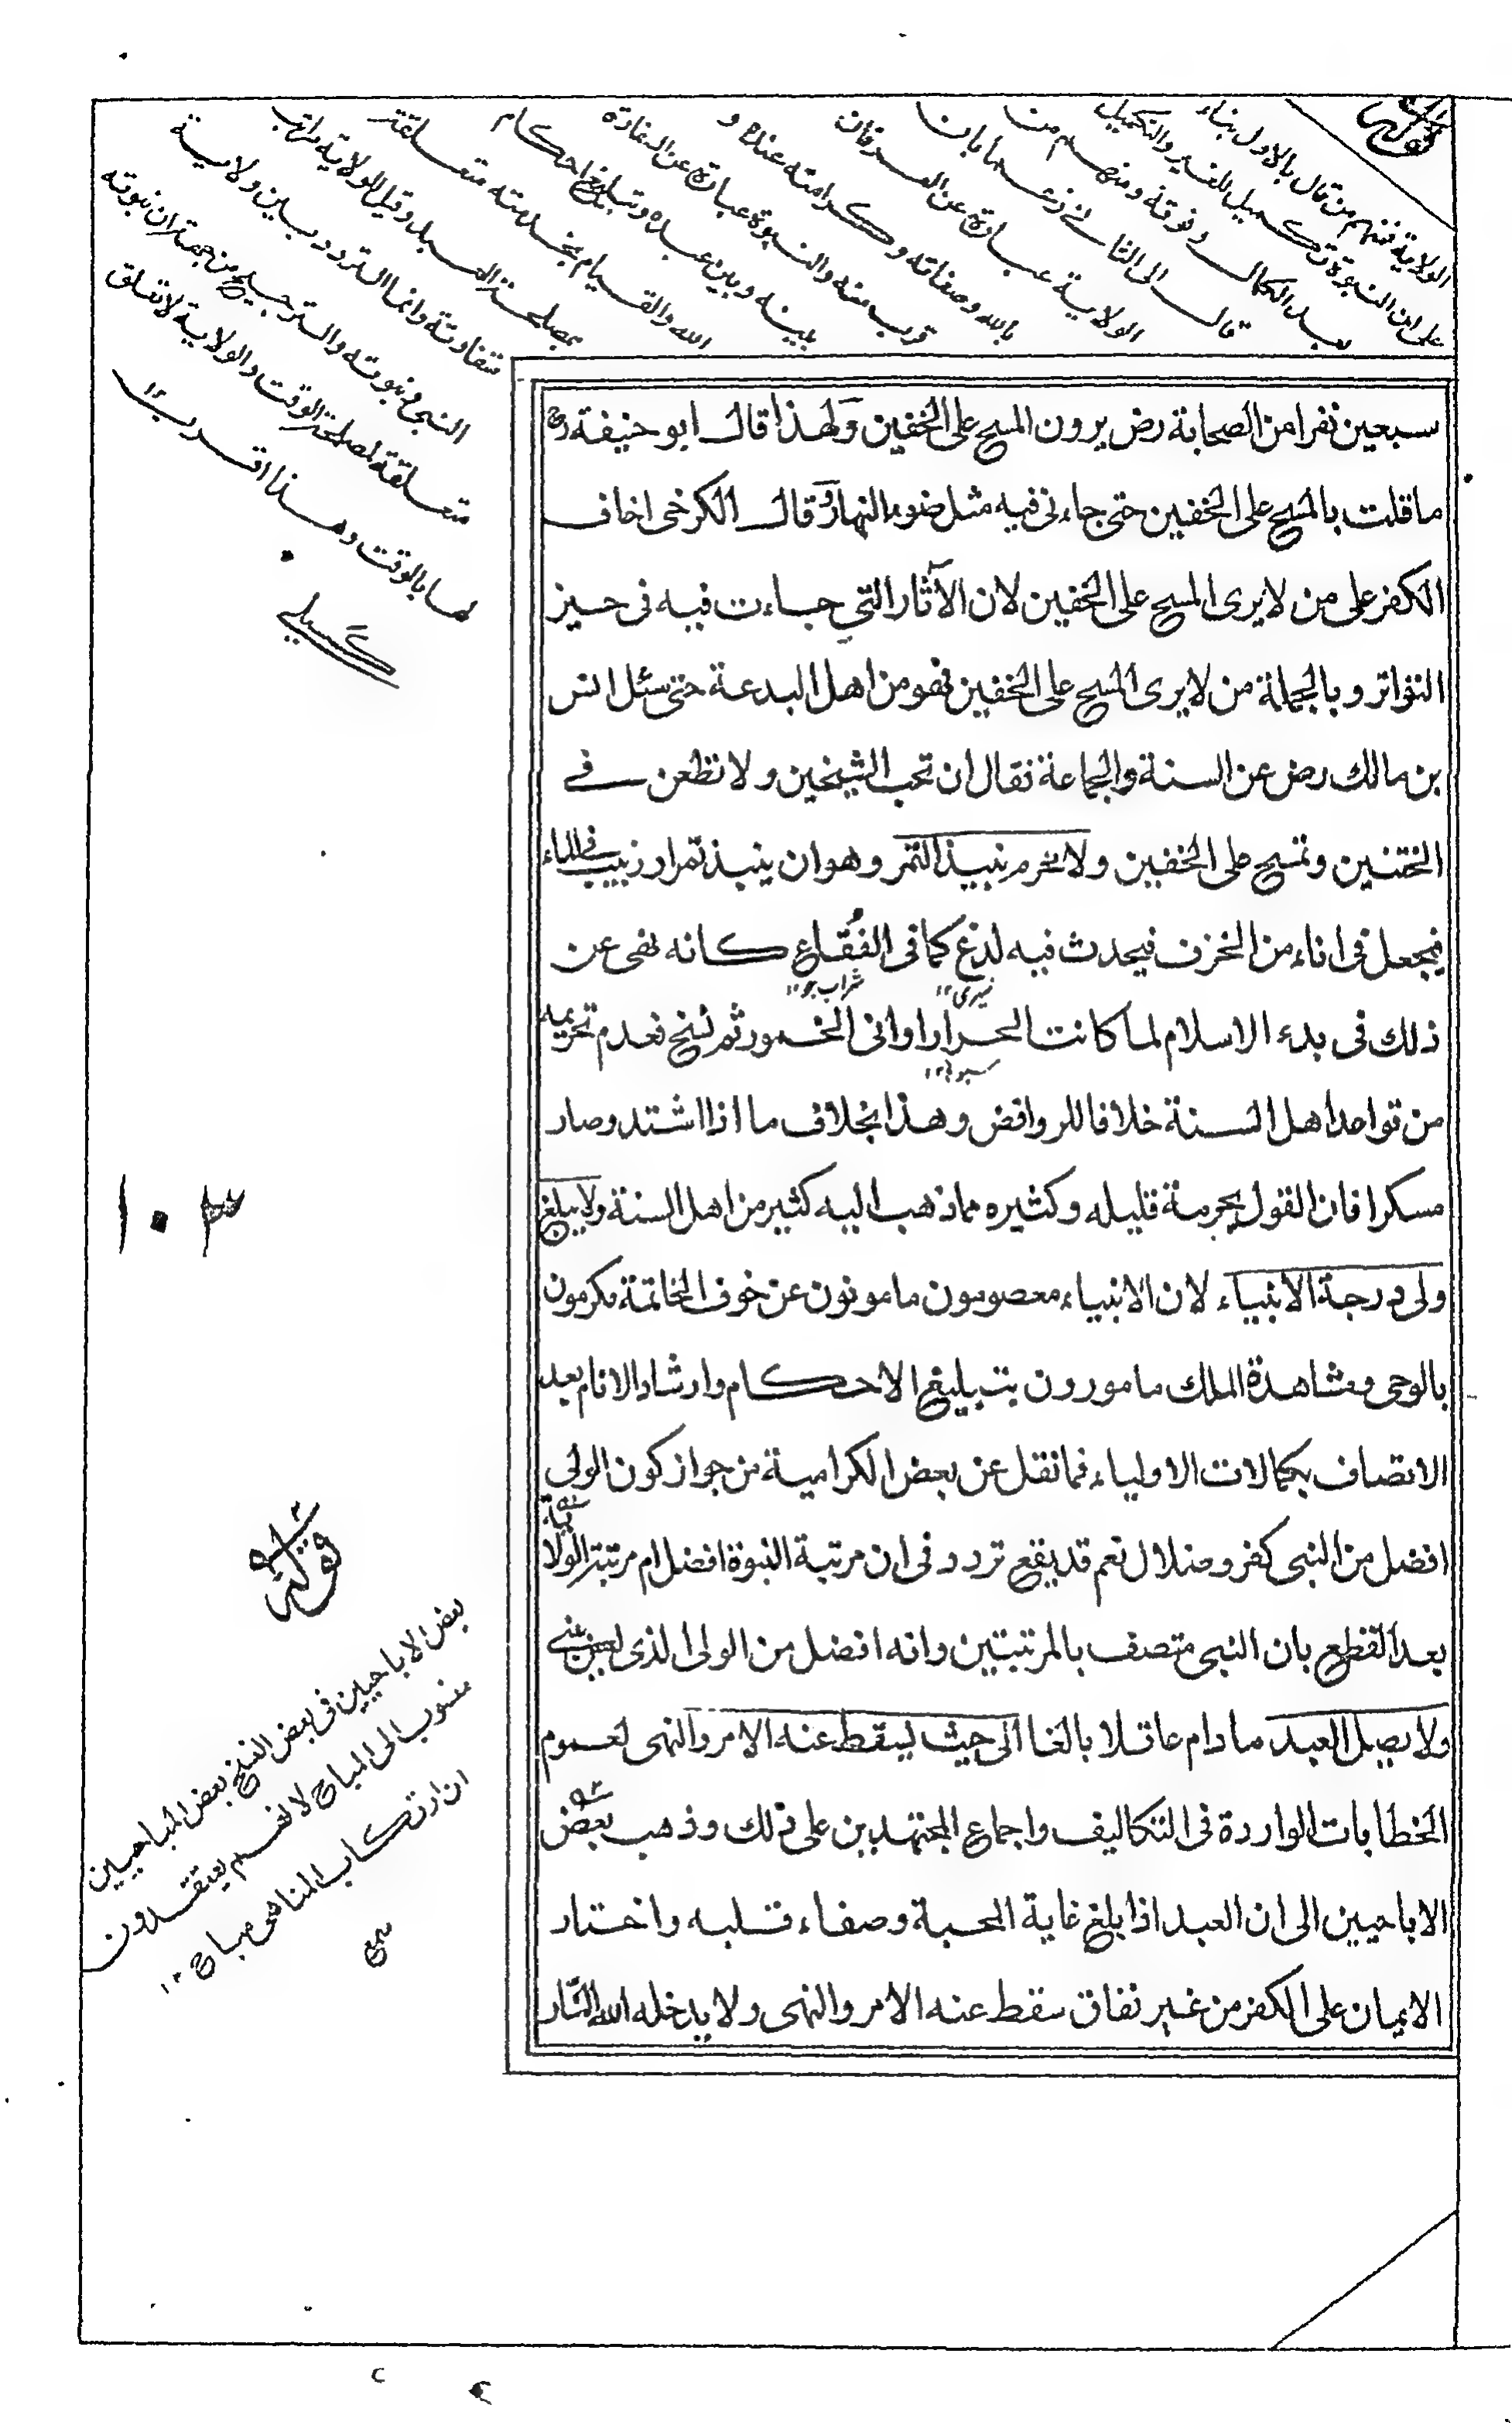 سبعين نفرا من الصحابة رض يرون المسح على الخفين ولهذا قال ابو حنيفة رح
ما قلت بالمسح على الخفين حتى جاءنى فيه مثل ضوء النهار وقال الكرخى اخاف
الكفر على من لا يرى المسح على الخفين لان الآثار التى جاءت فيه فى حيز
التواتر وبالجملة من لا يرى المسح على الخفين فهو من اهل البدعة حتى سئل انس
بن مالك رض عن السنة والجماعة فقال ان تحب الشيخين ولا تطعن فے
الختنين وتمسح على الخفين ولا نحرم نبيذ التمر وهو ان ينبذ تمر او زبيب فى الماء
فيجعل فى اناء من الخزف فيحدث فيه لذع كما فى الفُقاع كانه نهى عن
شراب جو ١٢
ذلك فى بدء الاسلام لما كانت الجرار اوانى الخمور ثم نسخ فعدم تحريمه
سبوها ١٢
من قواعد اهل السنة خلافا للروافض وهذا بخلاف ما اذا اشتد وصار
مسكرا فان القول بحرمة قليله وكثيره مما ذهب اليه كثير من اهل السنة ولا يبلغ
ولى درجة الانبياء لان الانبياء معصومون مامونون عن خوف الخاتمة مكرمون
بالوحى ومشاهدة الملك مامورون بتبليغ الاحكام وارشاد الانام بعد
الاتصاف بكمالات الاولياء فما نقل عن بعض الكرامية من جواز كون الولى
افضل من النبى كفر وضلال نعم قد يقع تردد فى ان مرتبة النبوة افضل ام مرتبة الولاية
بعد القطع بان النبى متصف بالمرتبتين وانه افضل من الولى الذى ليس بنبى
ولا يصل العبد ما دام عاقلا بالغا الى حيث يسقط عنه الامر والنهى لعموم
الخطابات الواردة فى التكاليف واجماع المجتهدين على ذلك وذهب بعض
الاباحيين الى ان العبد اذا بلغ غاية المحبة وصفاء قلبه واختار
الايمان على الكفر من غير نفاق سقط عنه الامر والنهى ولا يدخله الله النار
قوله
الولاية فمنهم من قال بالاول بناء
على ان النبوة تكميل للغير والتكميل
بعد الكمال وفوقه ومنهم من
قال الى الثانى زعما بان
الولاية عبارة عن العرفان
بالله وصفاته وكرامته عنده و
قرب منه والنبوة عبارة عن السفارة
بينه وبين عبده وتبليغ احكام
الله والقيام بخدمته متعلقة
بمصلحة العبد وقيل للولاية مراتب
متفاوتة وانما التردد بين ولاية
النبى ونبوته والترجيح من جهة ان نبوته
متعلقة لمصلحة الوقت والولاية لا تعلق
لها بالوقت وهذا اقرب ١٢
١٠٣
قوله
بعض الاباحيين فى بعض النسخ بعض المباحيين
منسوب الى المباح لانهم يعتقدون
ان ارتكاب المناهى مباح ١٢